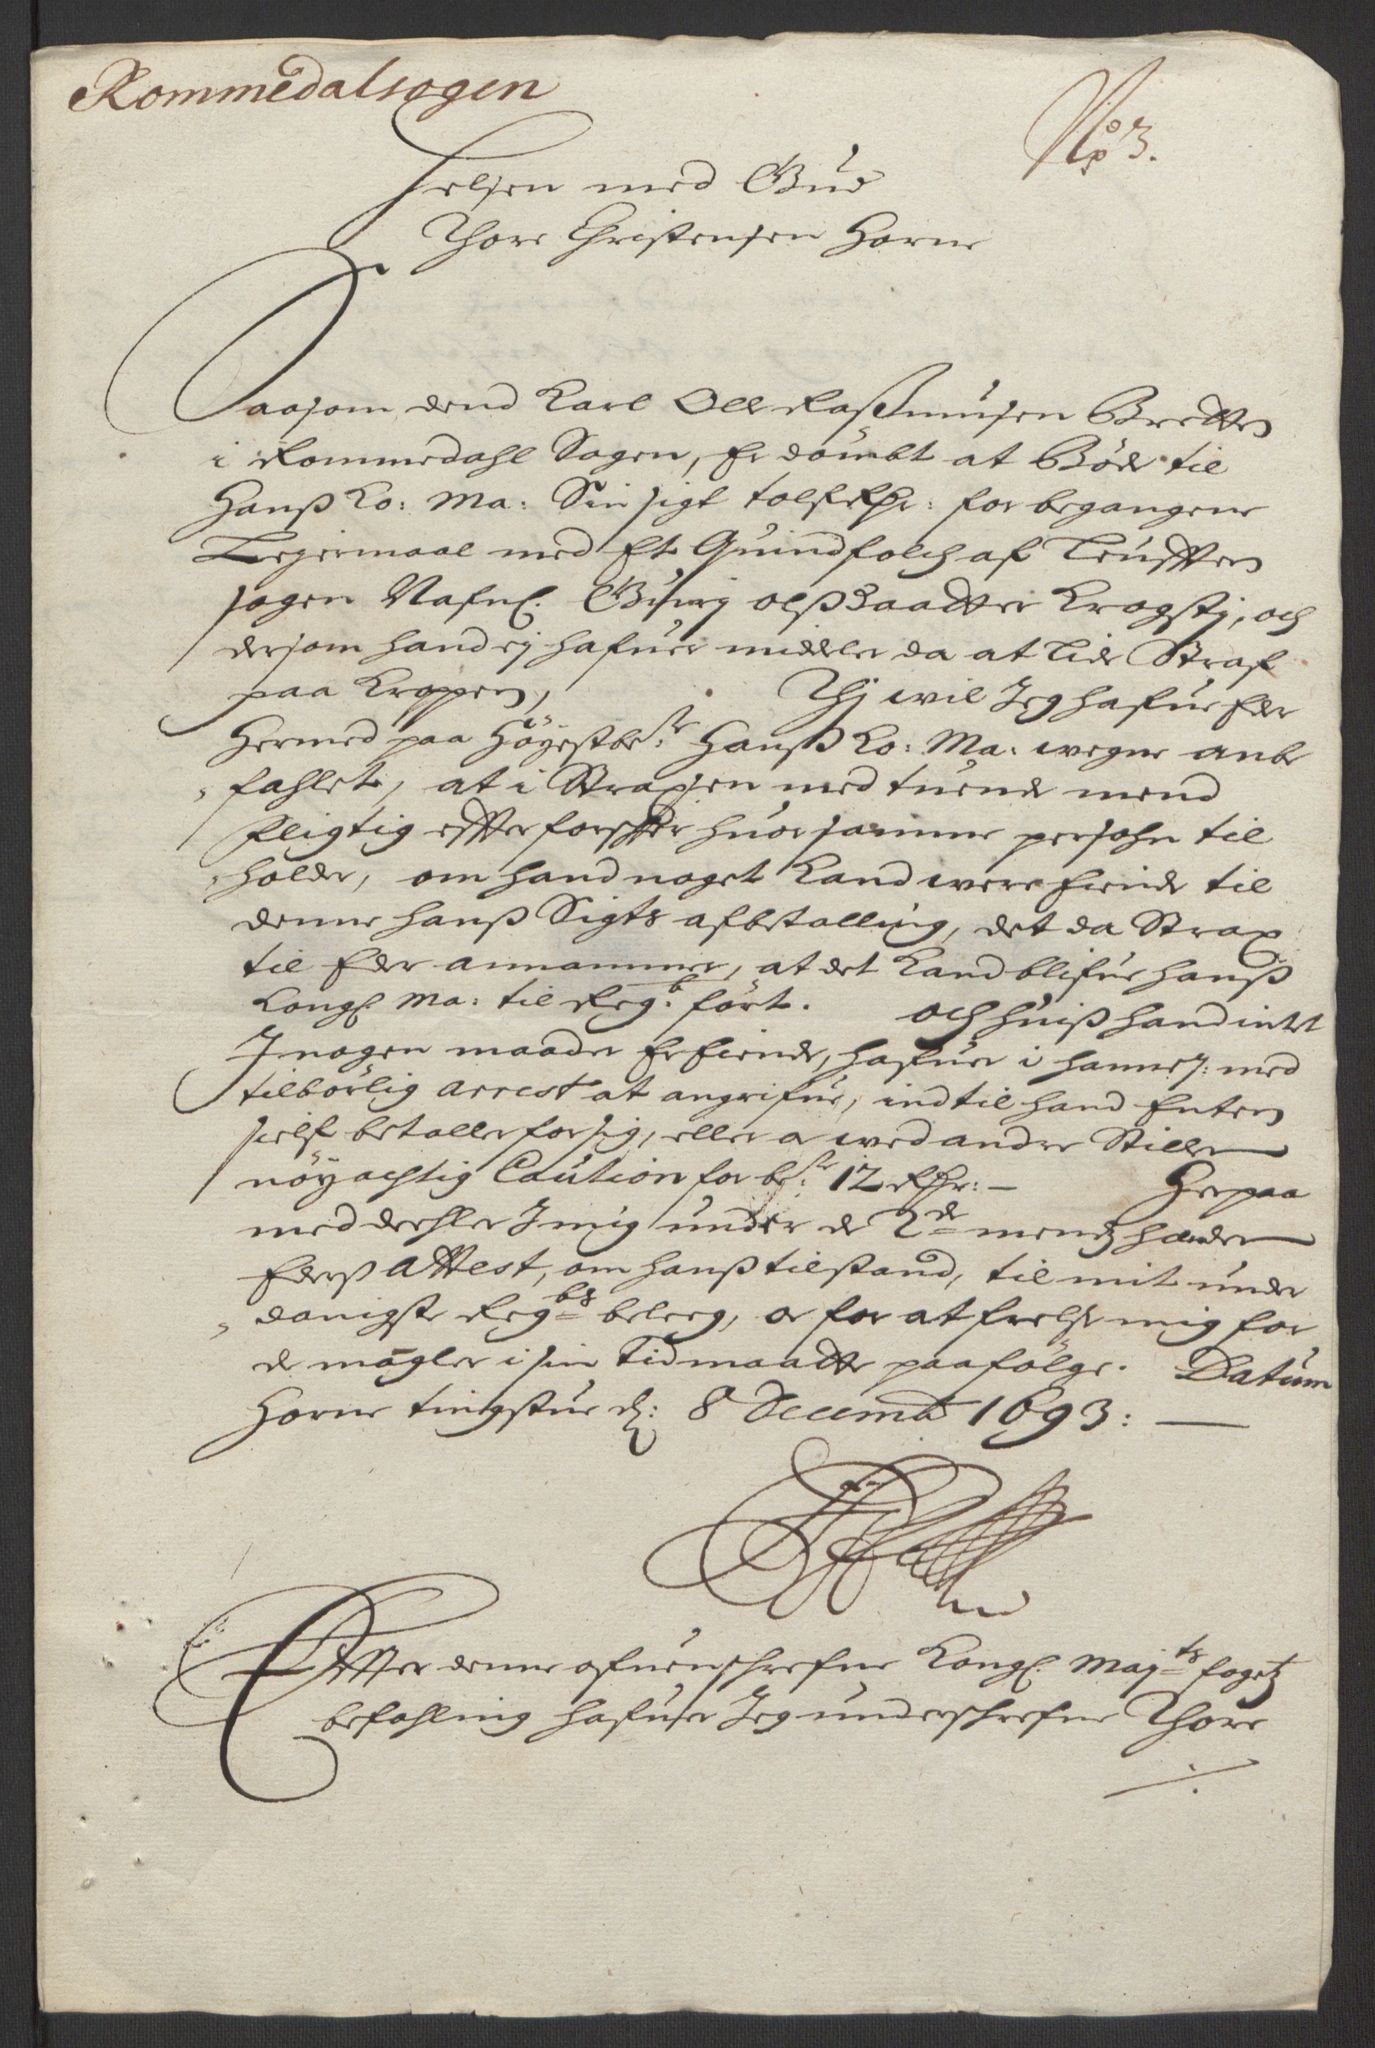 Rommedalsogen
No 3.
Helsen med Gud
Thore Christensen Horne
Saasom dend Karl Olle Rasmusen Bretten
i Rommedahl Sogen, Er dömbt at Böde til
Hanß Ko: Ma: Sin sigt tolf Rdr: for begangene
Leyermaal med Et Quindfolch af Leufften
sogen Nafnl. Guri olßdaatter Krogsti, och
dersom hand ej hafuer midler da at lide Straf
paa Kroppen, Thj wil Jeg hafue Eder
Hermed paa Höyestbete Hanß Ko: Ma: wegne anbe
fahlet, at i Straxsen med tuende mend
fligtig effterforscher huor samme persohn til
holder, om hand noget Kand were Eiende til
denne hanß Sigts afbetalling, det da Strax
til Eder annammer, at det Kand blifue hanß
Kongl. Ma: til Regb. fört. och huiß hand intet
J nogen maader Er Eiende, hafuer i hannem: med
tilbörlig arrest at angrifue, indtil hand Enten
sielf betaller for sig, eller a wed andre Stiller
nöyachtig Caution for bete 12 Rdr: — Herpaa
meddeehler J mig under de 2de mends hender
Ederß Attest, om hanß tilstand, til mit under
danigste Regbs beleeg, o for at frelse mig for
de mogler i sin Tid maatte paafölge. Datum
Horne tingstue d: 8 Decemb 1693: —
Effter denne ofuenschrefne Kongl. Mayts fogetz
befahling hafuer Jeg underschrefne Thore